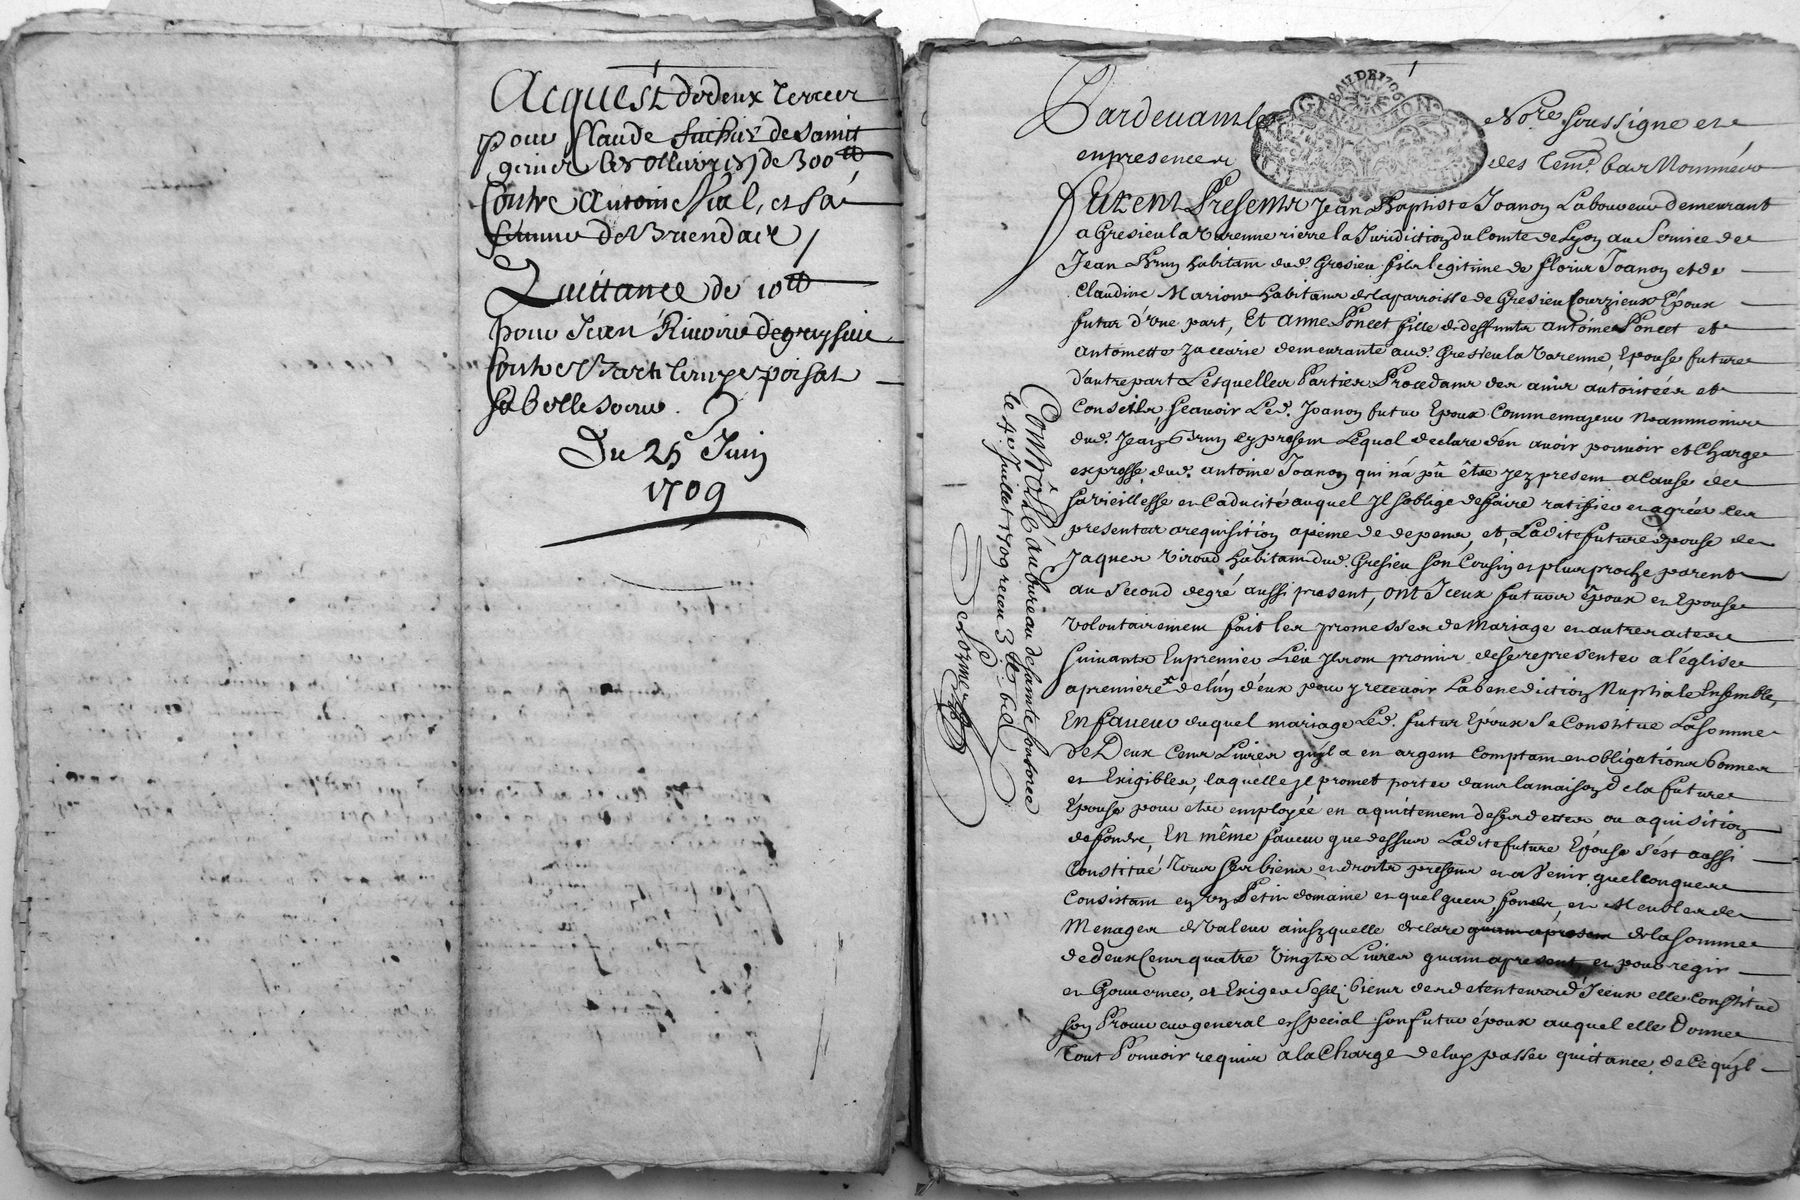 Acquest de deux terrier
pour Claude de Sainct
genier les Ollieres de 300 tt
Contre Antoine Vial, et sa
femme de Briendair
Quittance de 10 tt
pour Jean Rivoire de greysieu
Contre poisat
sa belle soeur.
Du 25 Juin
1709
GENERATION
Pardevant le No.re soussigné et
en presence des tem. bas Nommés
Furent Presents Jean Baptiste Joanon Laboureur demeurant
a Gresieu la Varenne riere la Juridiction du Comte de Lyon au Service de
Jean Brun habitant dud. Gresieu fils legitime de fleury Joanon et de
Claudine Marion habitans de la parroisse de Gresieu Courzieux Epoux
futur d'une part, Et anne Poncet fille de deffunts antoine Poncet et
antoinette Zaccarie demeurante aud. Gresieu la Varenne, Epouse future
d'autre part Lesquelles Parties Procedans des avis autorités et
Conseils, scavoir Led. Joanon futur Epoux Comme majeur Neammoins
dud. Jean Brun cy present Lequel declare d'en avoir pouvoir et Charge
expresse dud. antoine Joanon qui n'a pû être icy present a Cause de
sa vieillesse et Caducité auquel Il s'oblige de faire ratifier et agréer les
presentes a requisition a peine de depens, et, Ladite future épouse de
Jaques Viroud habitant dud. Gresieu son Cousin et plus proche parent
au Second degré aussi present, ont Iceux futurs époux et Epouse
Volontairement fait les promesses de Mariage et autres actes
suivants En premier Lieu Ils ont promis de se representer a l'église
a premiere de l'un d'eux pour y recevoir La benediction Nuptiale Ensemble,
En faveur duquel mariage Led. futur Epoux Se Constitue La Somme
De Deux Cens Livres qu'il a en argent Comptant en obligations bonnes
et Exigibles, laquelle Il promet porter dans la maison de la future
Epouse pour etre employée en aquittement de ses dettes ou aquisition
de fonds, En même faveur que dessus Ladite future Epouse s'est aussi
Constitué Tous ses biens et droits presens et a Venir quelconques
Consistant en un Petit domaine en quelques fonds, et Meubles de
Menages de Valeur ainsy quelle declare quant a present de la Somme
de deux Cens quatre Vingts Livres quant a present, et pour regir
et Gouverner, et Exiger Sesd. biens des detenteurs d'Iceux elle Constitue
son Procureur general et special son futur époux auquel elle Donne
tout Pouvoir requis a la Charge de luy passer quittance de Ce qu'il
Contrôlé au bureau de sainte Consorce
le 4e Juillet 1709 receu 3 tt
Delorme